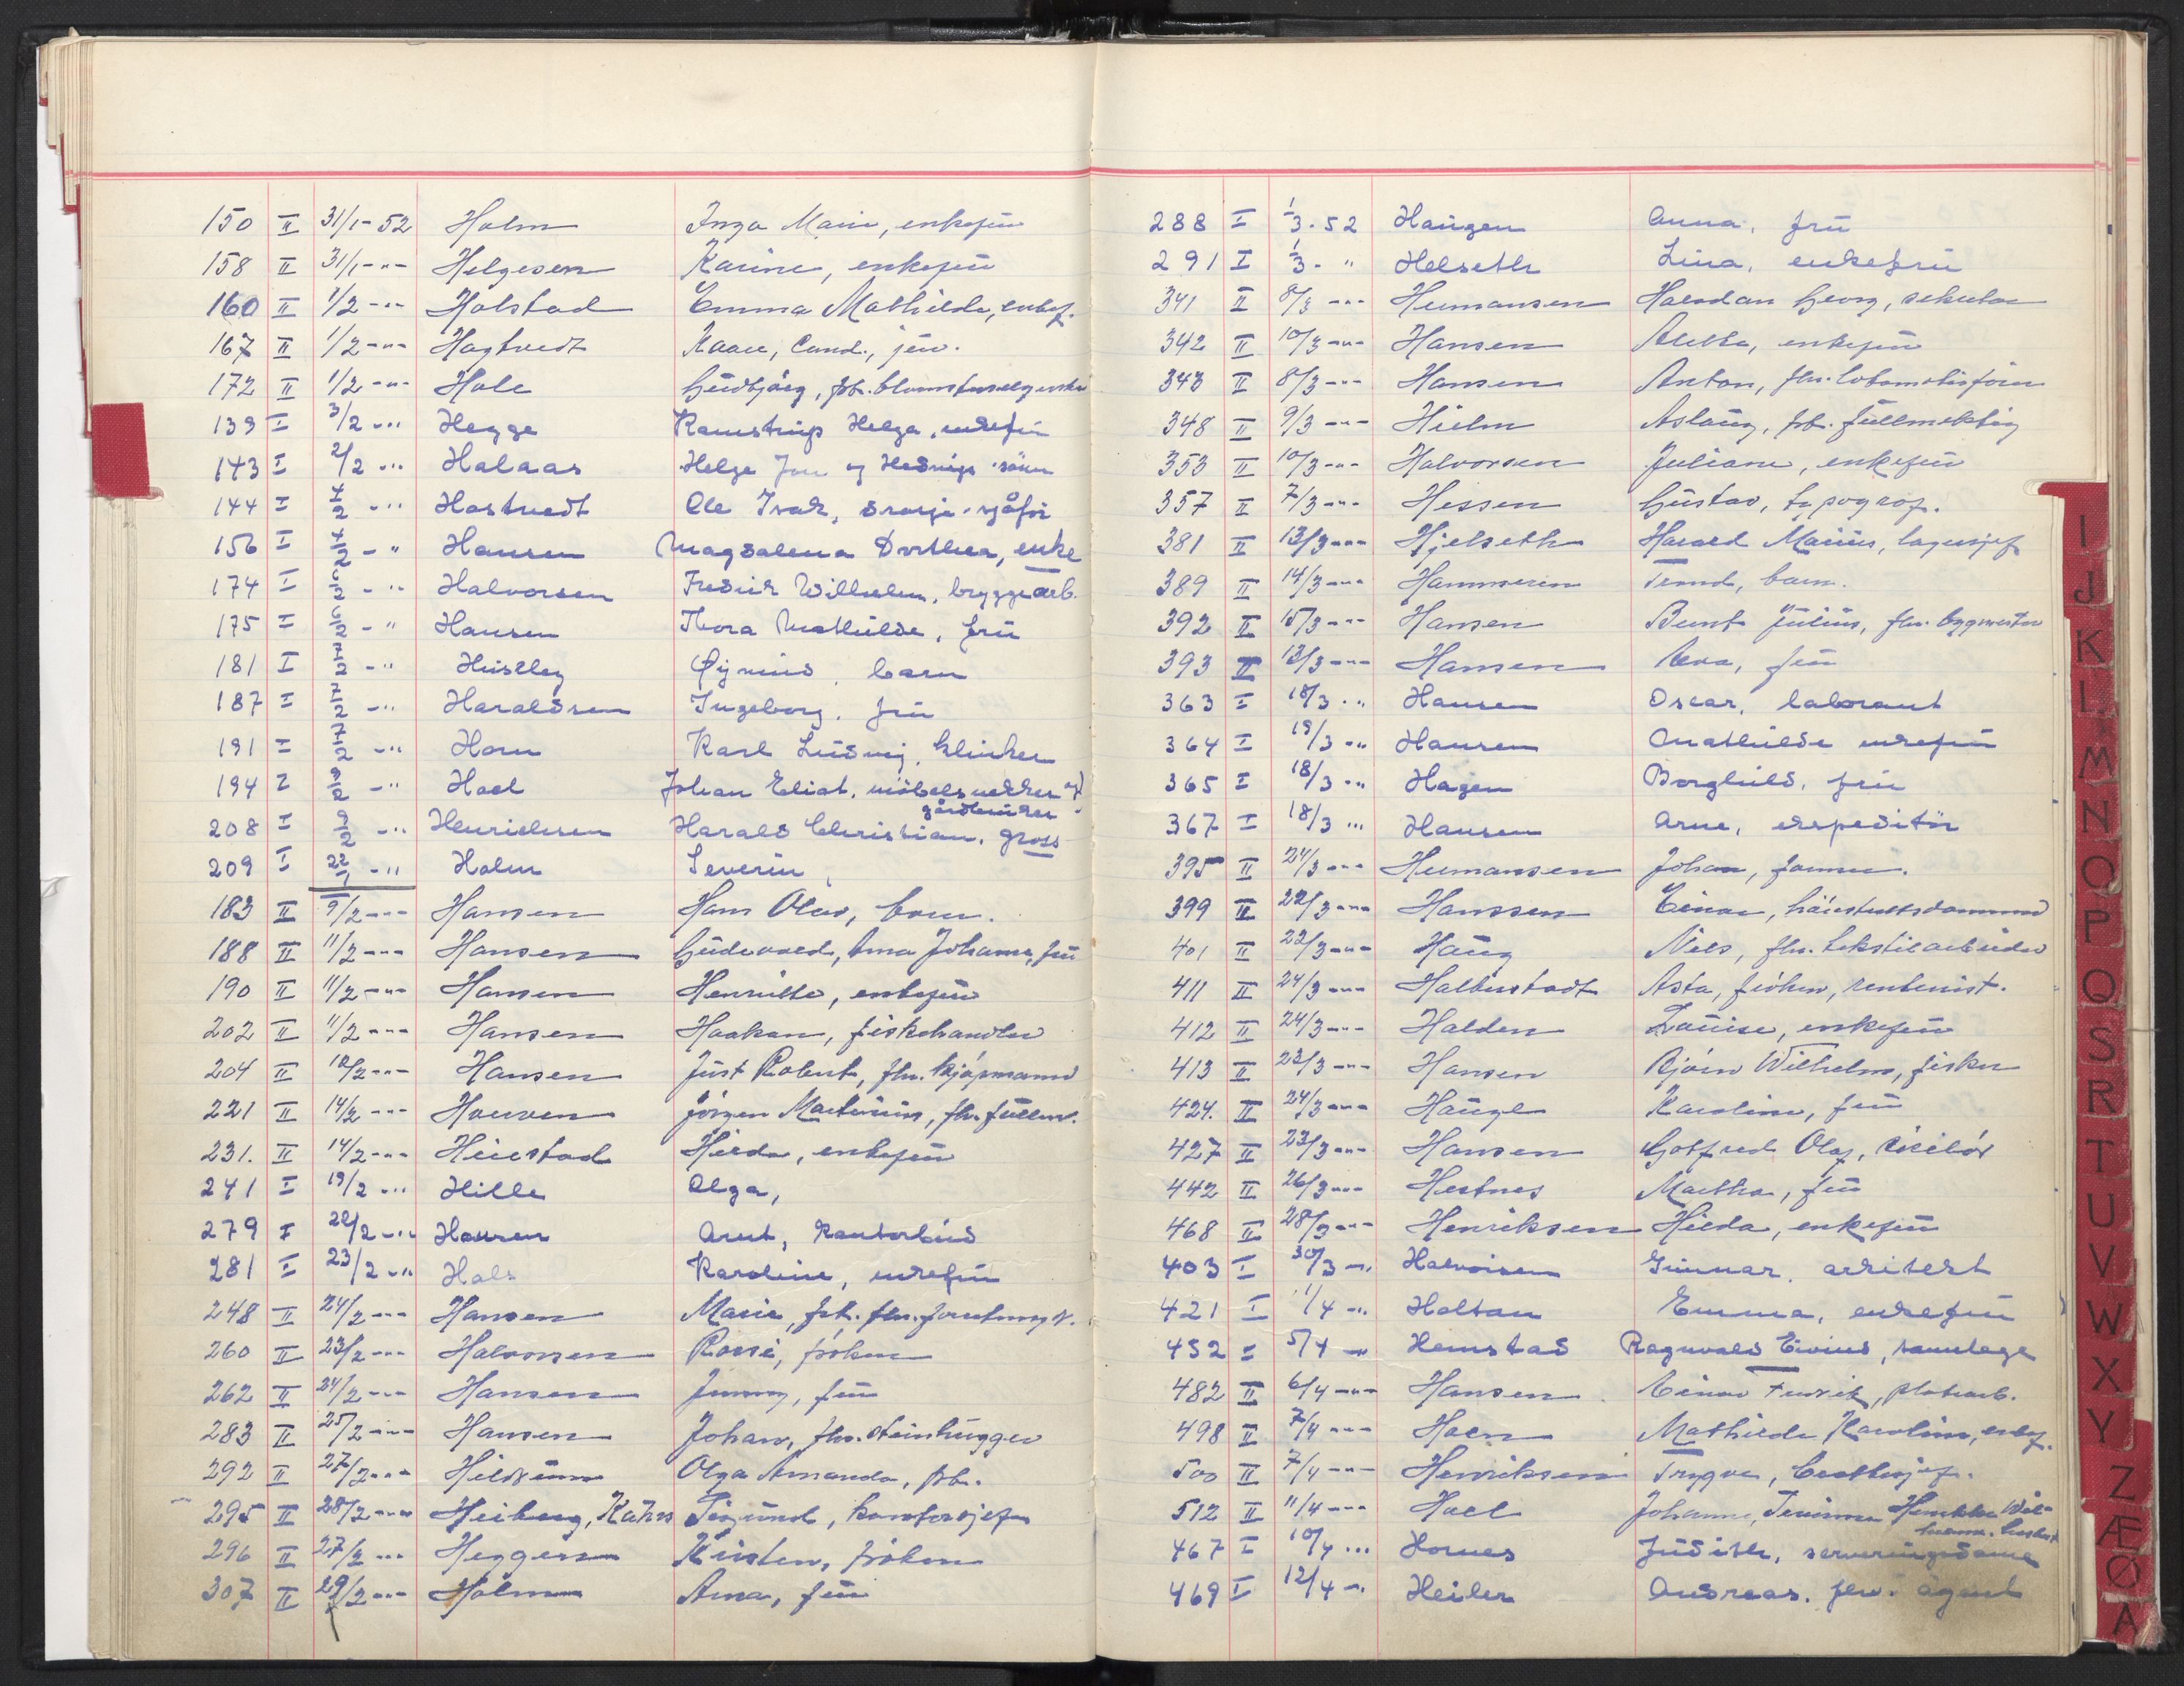 150 II 31/1-52 Holm Inga Marie, enkefrü
158 II 31/1 -"- Helgesen Karine, enkefrü
160 II 1/2 -"- Holstad Emma Mathilde, enkef.
167 II 1/2 -"- Hagtvedt Kaare, Cand. jür.
172 II 1/2 -"- Hole Güdbjörg, fhv. blomsterselgerske
139 I 3/2 -"- Hegge Kamstrup Helga, enkefrü
143 I 2/2 -"- Halaas Helge Jon og Hedvigs sönn
144 I 4/2 -"- Hostvedt Ole Isak, drosje-sjåför
156 I 4/2 -" Hansen Magdalena Dorthea, enke
174 I 6/2 -" Halvorsen Fredrik Wilhelm, bryggearb.
175 I 6/2 -" Hansen Thora Mathilde, frü
181 I 7/2 -" Hüseby Öyvind, barn
187 I 7/2 -" Haraldsen Ingeborg, frü
191 I 7/2 -" Horn Karl Lüdvig, klinker
194 I 9/2 -" Hoel Johan Eliat, möbelsnekker og
gårdbrüker
208 I 9/2 -" Henrichsen Harald Christian, gross
209 I 22/1 -" Holm Severin,
183 II 9/2 -"- Hansen Hans Olav, barn.
188 II 11/2 -"- Hansen Güdevald, Anna Johanne, frü
190 II 11/2 -"- Hansen Henriette, enkefrü
202 II 11/2 -"- Hansen Haakon, fiskehandler
204 II 12/2 -"- Hansen Jüst Robert, fhv. kjöpmann
221 II 14/2 -"- Hoüven Jörgen Martinius, fhv. füllm.
231. II 14/2 -"- Heiestad Hilda, enkefrü
241 I 19/2 -" Hille Olga,
279 I 22/2 -" Hansen Arnt, kontorbüd
281 I 23/2 -" Hals Karoline, enkefrü
248 II 24/2 -"- Hansen Marie, frk. fhv.
260 II 23/2 -"- Halvorsen Rossi, fröken
262 II 24/2 -"- Hansen Jenny, frü
283 II 25/2 -"- Hansen Johan, fhv. steinhügger
292 II 27/2 -"- Hildrüm Olga Amanda, frk.
295 II 28/2 -"- Heiberg, Kahrs Sigünd, kontorsjef
296 II 27/2 -"- Heggen Kirsten, fröken
307 II 29/2 -"- Holm Anna, frü
288 I 1/3 - 52 Haügen Anna, frü
291 I 1/3 - " Helseth Lina, enkefrü
341 II 8/3 -"- Hermansen Halvdan Georg, sekretær
342 II 10/3 -"- Hansen Aletta, enkefrü
343 II 8/3 -"- Hansen Anton, fhv. lokomotivförer
348 II 9/3 -"- Hielm Aslaüg, frk. füllmektig
353 II 10/3 -"- Halvorsen Juliane, enkefrü
357 II 7/3 -"- Hessen Güstav, typograf.
381 II 13/3 -"- Hjelseth Harald Mariüs, lagersjef
389 II 14/3 -"- Hammeren Trond, barn.
392 II 15/3 -"- Hansen Bernt Jüliüs, fhv. byggmester
393 II 13/3 -"- Hansen Aasa, frü
363 I 18/3 -" Hansen Oscar, laborant
364 I 19/3 -" Hansen Mathilde enkefrü
365 I 18/3 -" Hagen Borghild, frü
367 I 18/3 -" Hansen Arne, ekspeditör
395 II 24/3 -"- Hermansen Johan, former.
399 II 22/3 -"- Hanssen Einar,
401 II 22/3 -"- Haüg Nils, fhv. tekstilarbeider
411 II 24/3 -"- Halberstadt Asta, fröken, rentenist.
412 II 24/3 -"- Halden Loüise, enkefrü
413 II 23/3 -"- Hansen Björn Wilhelm, fisker
424. II 24/3 -"- Haüge Karoline, frü
427 II 23/3 -"- Hansen Gotfred Olaf, ciselör
442 II 26/3 -"- Hestnes Martha, frü
468 II 28/3 -"- Henriksen Hilda, enkefrü
403 I 30/3 -" Halvorsen Günnar, arkitekt
421 I 1/4 -" Holtan Emma, enkefrü
452 I 5/4 -" Hemstad Ragnvald Eivind, tannlege
482 II 6/4 -"- Hansen Einar Fredrik, platearb.
498 II 7/4 -"- Hoen Mathilde Karoline, enkef.
500 II 7/4 -"- Henriksen Trygve,
512 II 11/4 -"- Hoel Johanne, Henrikke Wil-
467 I 10/4 -" Hornes Jüdith, serveringsdame
469 I 12/4 -" Heiler Andreas, fhv. agent
I
J
K
L
M
N
O
P
Q
S
R
T
U
V
W
X
Y
Z
Æ
Ø
A